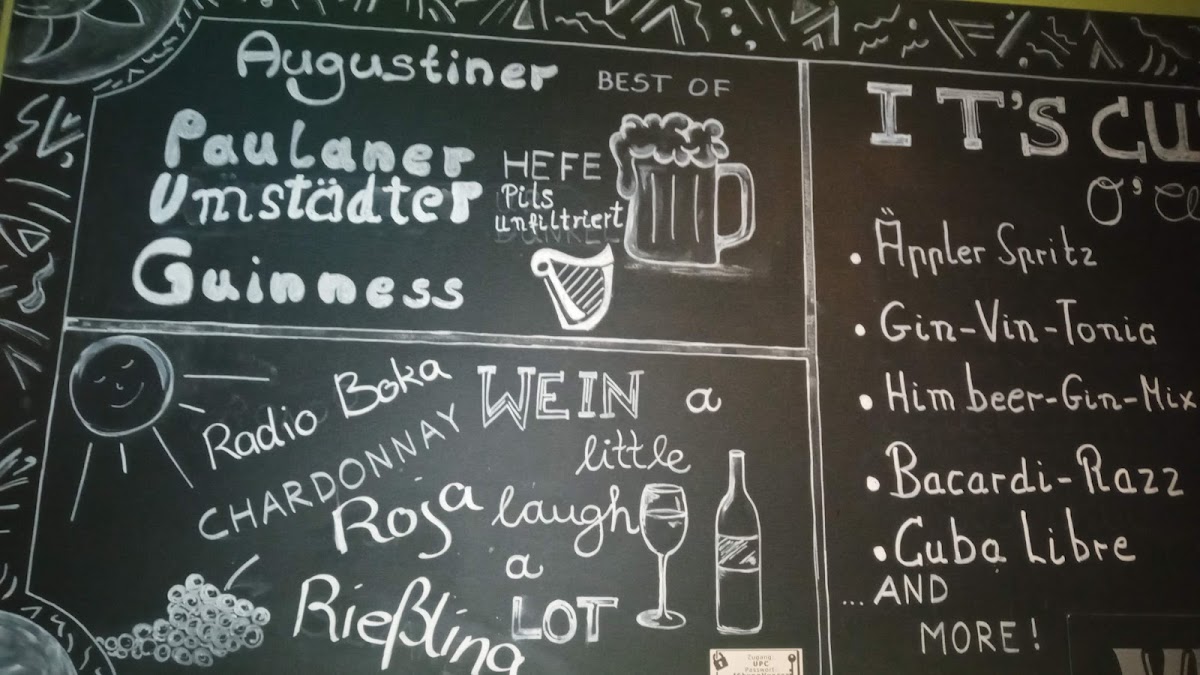 Augustiner
BEST OF
Paulaner HEFE
Umstädter Pils
unfiltriert
Guinness
Radio Boka
CHARDONNAY
Roja
Rießling
WEIN a
little
laugh
a
LOT
IT'S CU
O'
• Äppler Spritz
• Gin-Vin-Tonic
• Himbeer-Gin-Mix
• Bacardi-Razz
• Cuba Libre
...AND
MORE!
Zugang:
UPC
Passwort: